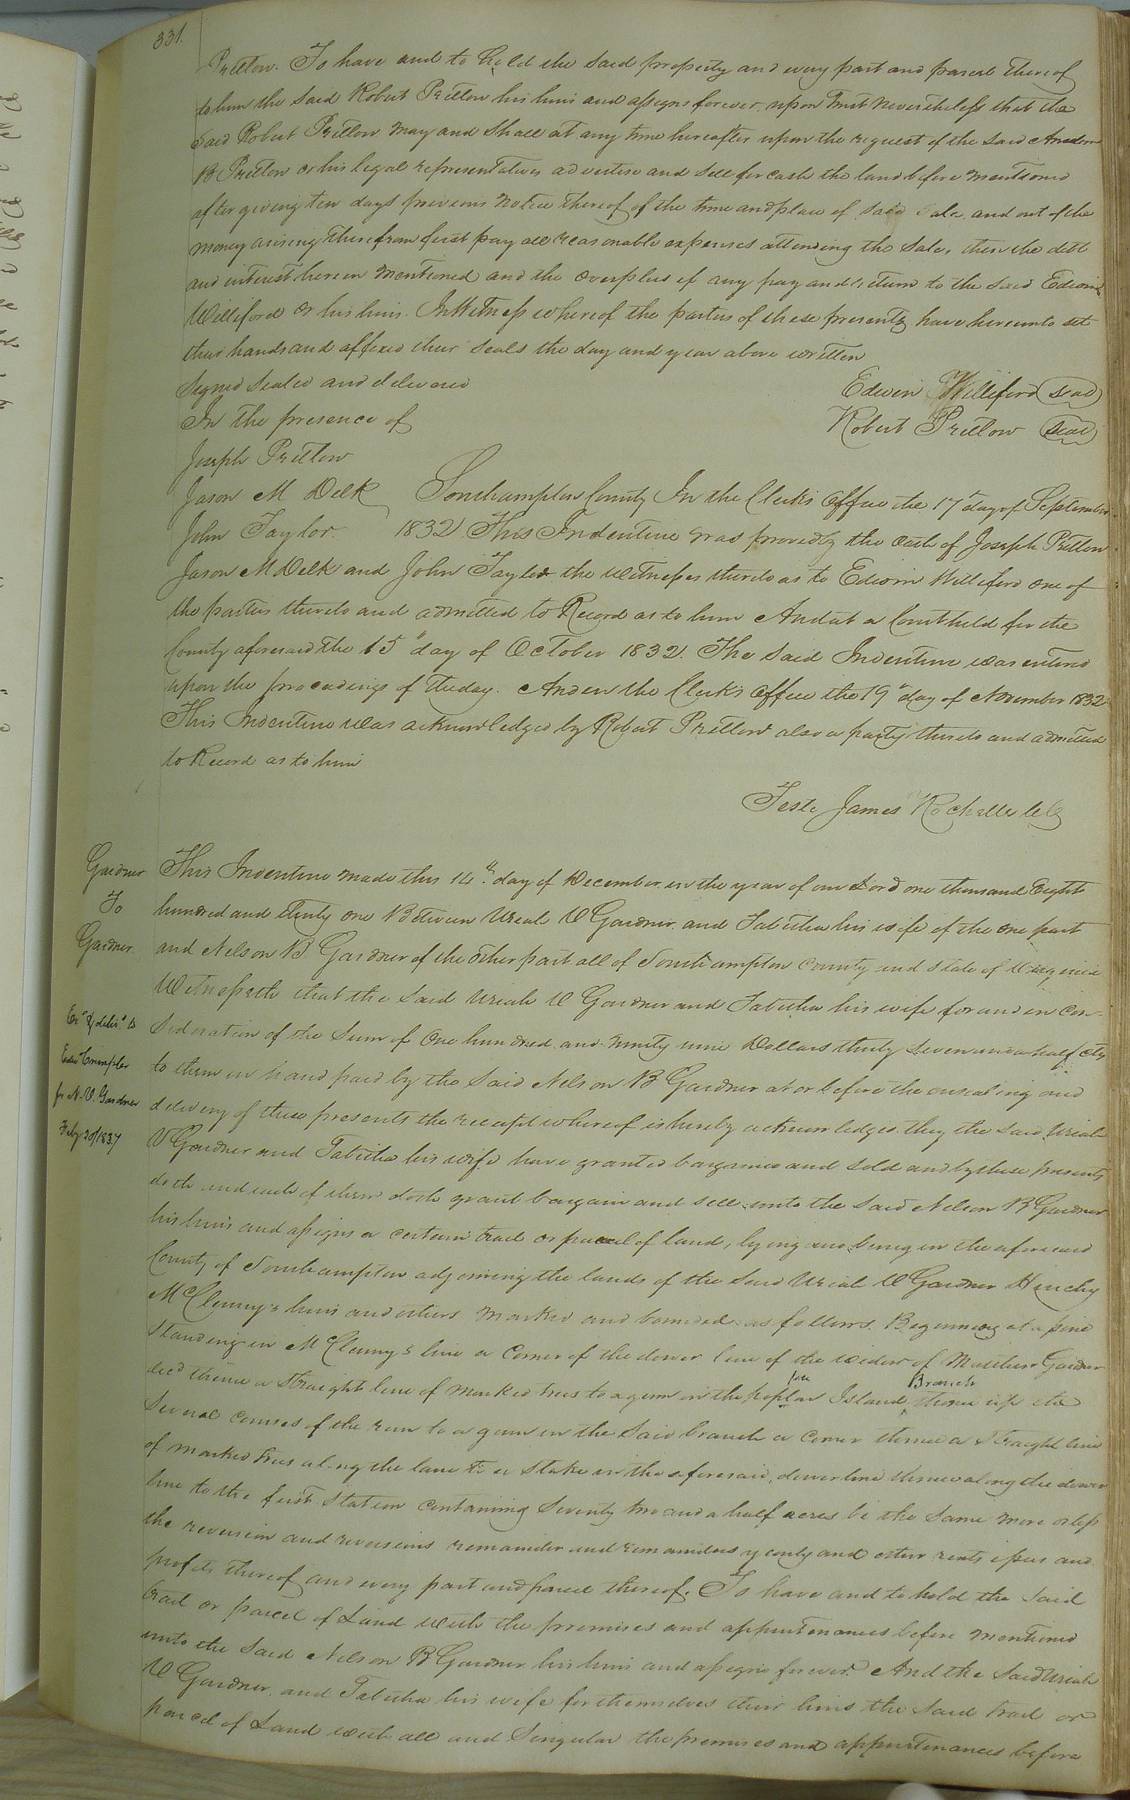 331.
Pretlow. To have and to hold the said property and every part and parcel thereof
to him the said Robert Pretlow his heirs and assigns forever, upon trust nevertheless that the
said Robert Pretlow may and shall at any time hereafter upon the request of the said
B Pretlow or his legal representatives advertise and sell for cash the land before mentioned
after giving ten days previous notice thereof of the time and place of said sale and out of the
money arising therefrom first pay all reasonable expenses attending the sale, then the debt
and interest herein mentioned and the overplus if any pay and return to the said Edwin
Williford or his heirs. In Witness whereof the parties of these presents have hereunto set
their hands and affixed their seals the day and year above written
Signed sealed and delivered
Edwin Williford (seal)
In the presence of
Robert Pretlow (seal)
Joseph Pretlow
Jason M Delk Southampton County In the Clerk's Office the 17th day of September
John Taylor. 1832 This Indenture was proved by the oath of Joseph Pretlow
Jason M Delk and John Taylor the witnesses thereto as to Edwin Williford one of
the parties thereto and admitted to Record as to him And at a Court held for the
County aforesaid the 15" day of October 1832. The said Indenture was entered
upon the proceedings of the day. And in the Clerk's Office the 19" day of November 1832
This Indenture was acknowledged by Robert Pretlow also a party thereto and admitted
to Record as to him
Teste James Rochelle
Gardner
To
Gardner
This Indenture made this 14th day of December in the year of our Lord one thousand Eight
hundred and thirty one Between Uriah V Gardner and Tabitha his wife of the one part
and Nelson B Gardner of the other part all of Southampton County and state of Virginia
Witnesseth that the said Uriah V Gardner and Tabitha his wife for and in con-
sideration of the sum of One hundred and ninety nine Dollars thirty seven and a half cts
to them in hand paid by the said Nelson B Gardner at or before the ensealing and
delivery of these presents the receipt whereof is hereby acknowledged they the said Uriah
V Gardner and Tabitha his wife have granted bargained and sold and by these presents
doth and each of them doth grant bargain and sell unto the said Nelson B Gardner
his heirs and assigns a certain tract or parcel of land, lying and being in the aforesaid
County of Southampton adjoining the lands of the said Uriah V Gardner
McClenny's heirs and others marked and bounded as follows Beginning at a pine
standing in McClenny's line a Corner of the dower line of the widow of Matthew Gardner
decd thence a straight line of marked trees to a gum in the poplar Island Branch thence up the
several courses of the run to a gum in the said branch a corner thence a straight line
of marked trees along the lane to a stake in the aforesaid dower line thence along the dower
line to the first station containing Seventy two and a half acres be the same more or less
the reversion and reversions remainder and remainders yearly and other rents issues and
profits thereof and every part and parcel thereof. To have and to hold the said
tract or parcel of Land with the premises and appurtenances before mentioned
unto the said Nelson B Gardner his heirs and assigns forever. And the said Uriah
V Gardner and Tabitha his wife for themselves their heirs the said tract or
parcel of Land with all and Singular the premises and appurtenances before
Exd & delivd to
for N. B. Gardner
Feby 20/1837